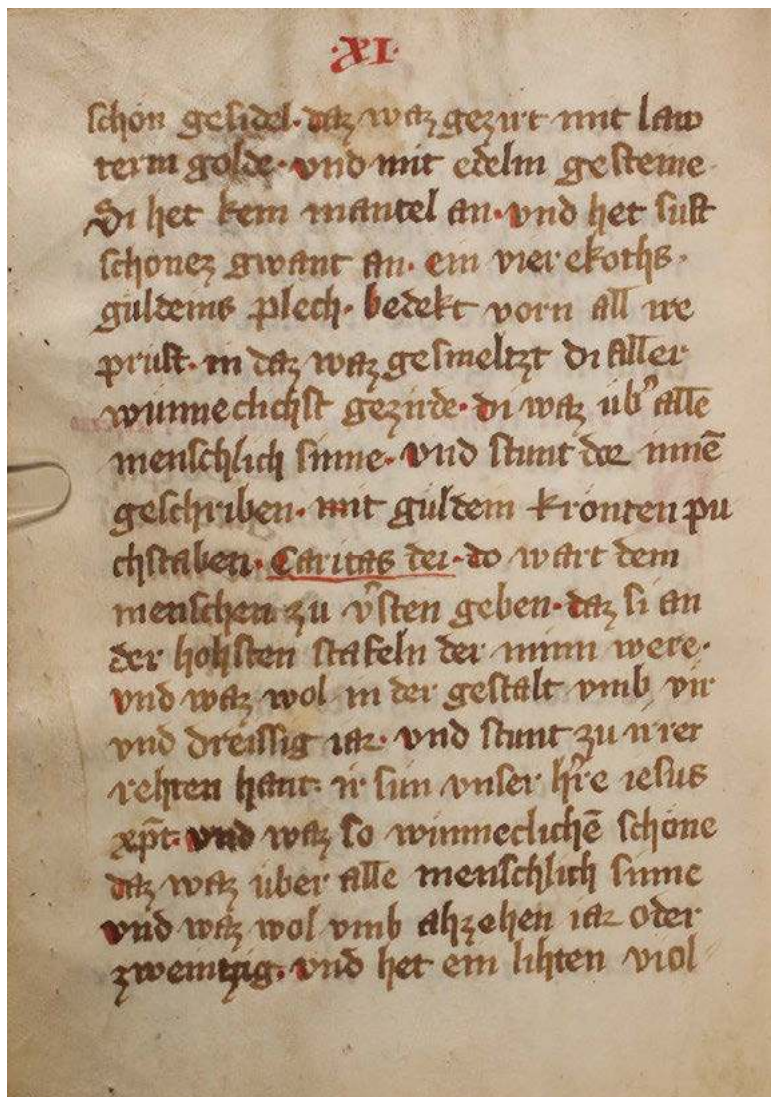 ·XI·
schön gesidel· daz waz gezirt mit law
term golde· vnd mit edelm gesteine·
Di het kein mantel an· vnd het sust
schönez gwant an· ein vierekoths·
guldeins plech· bedekt vorn all ire
prust· in daz waz gesmeltzt di aller
wunneclichst gezirde· di waz üb᾽ alle
menschlich sinne· vnd stunt dor innē
geschriben· mit guldein kronten pu
chstaben· Caritas dei· do wart dem
menschen zu v᾽sten geben· daz si an
der hohsten stafeln der minn were·
vnd waz wol in der gestalt vmb vir
vnd dreissig iar· vnd stunt zu irer
rehten hant· ir sun vnser h᾽re iesus
xp̄t· vnd waz so winneclichē schöne
daz waz über alle menschlich sinne
vnd waz wol vmb ahzehen iar oder
zweintzig· vnd het ein lihten viol